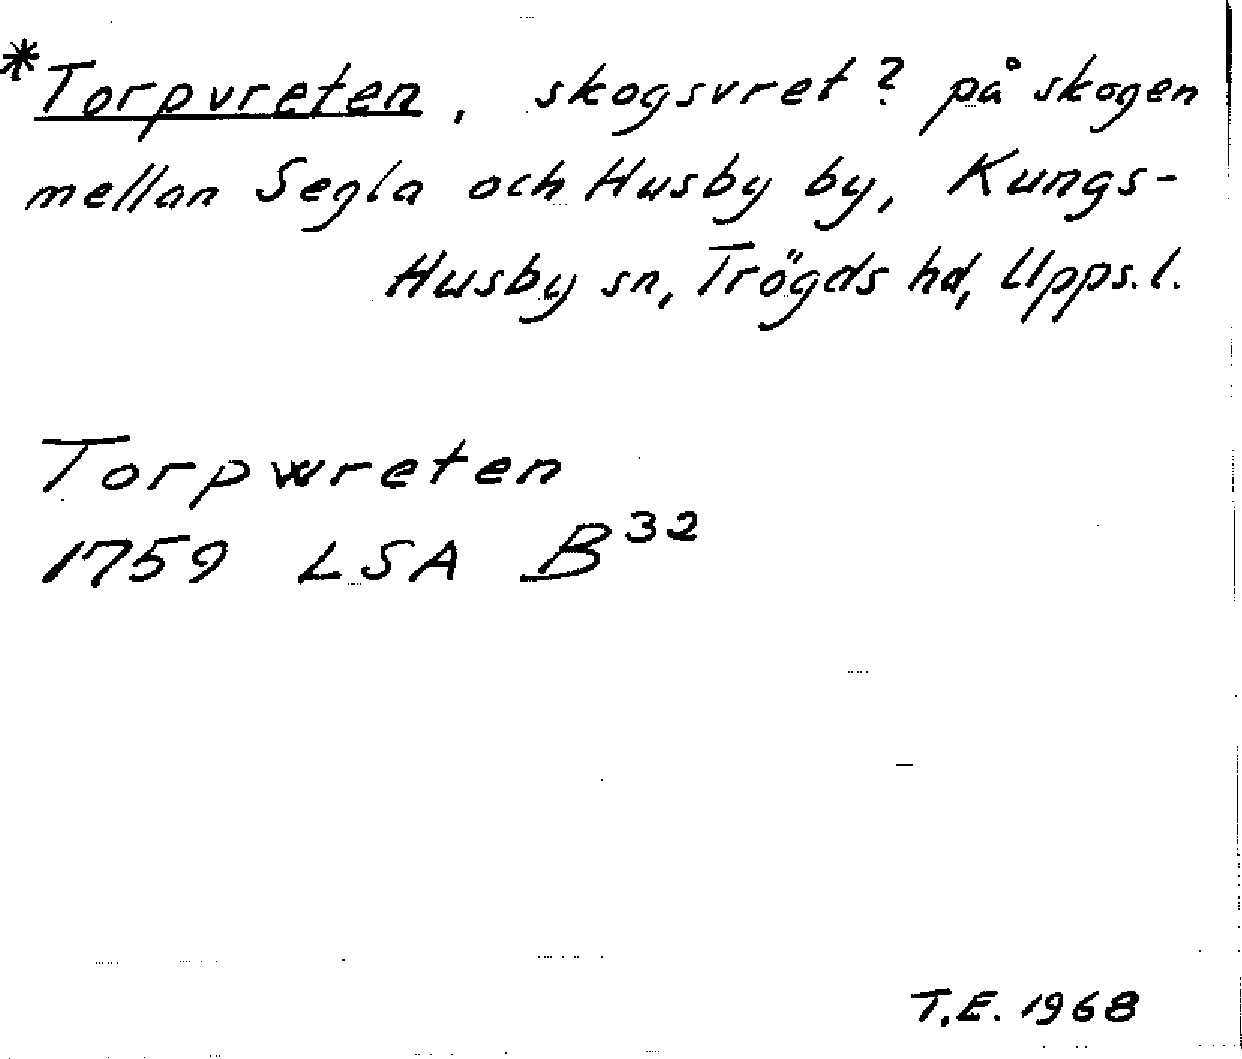 *Torpvreten, skogsvret? på skogen
mellan Segla och Husby by, Kungs-
Husby sn, Trögds hd, Upps. l.
Torpwreten
1759 LSA B32
T.E. 1968